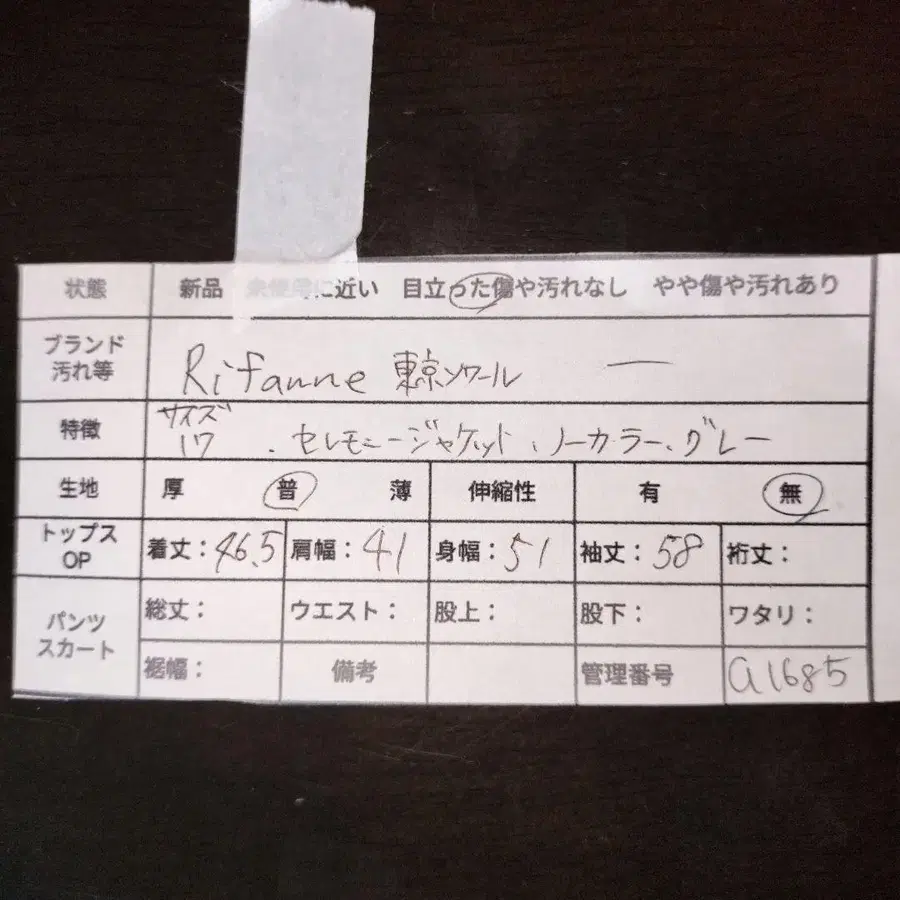 状態 新品 未使用に近い 目立った傷や汚れなし やや傷や汚れあり
ブランド 汚れ等 Rifanne 東京ソワール ―
特徴 サイズ 17 . セレモニージャケット、ノーカラー、グレー
生地 厚 普 薄 伸縮性 有 無
トップス OP 着丈:46.5 肩幅:41 身幅:51 袖丈:58 裄丈:
パンツ スカート 総丈: ウエスト: 股上: 股下: ワタリ:
裾幅: 備考 管理番号 a1685